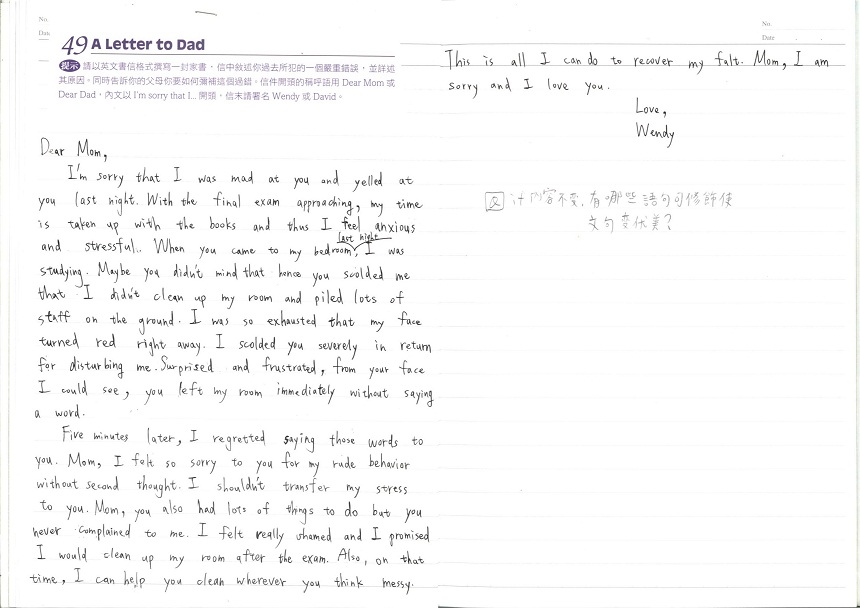 No.
Date
49 A Letter to Dad
提示 請以英文書信格式撰寫一封家書，信中敘述你過去所犯的一個嚴重錯誤，並詳述
其原因。同時告訴你的父母你要如何彌補這個過錯。信件開頭的稱呼語用 Dear Mom 或
Dear Dad，內文以 I'm sorry that I... 開頭，信末請署名 Wendy 或 David。
Dear Mom,
I'm sorry that I was mad at you and yelled at
you last night. With the final exam approaching, my time
is taken up with the books and thus I feel anxious
and stressful. When you came to my bedroom last night, I was
studying. Maybe you didn't mind that hence you scolded me
that I didn't clean up my room and piled lots of
staff on the ground. I was so exhausted that my face
turned red right away. I scolded you severely in return
for disturbing me. Surprised and frustrated, from your face
I could see, you left my room immediately without saying
a word.
Five minutes later, I regretted saying those words to
you. Mom, I felt so sorry to you for my rude behavior
without second thought. I shouldn't transfer my stress
to you. Mom, you also had lots of things to do but you
never complained to me. I felt really shamed and I promised
I would clean up my room after the exam. Also, on that
time, I can help you clean wherever you think messy.
No.
Date
This is all I can do to recover my falt. Mom, I am
sorry and I love you.
Love,
Wendy
Q 內容不變，有哪些語句可修飾使
文句變優美？